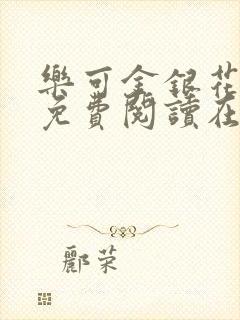 樂可金銀花
免費閱讀在
酈荣